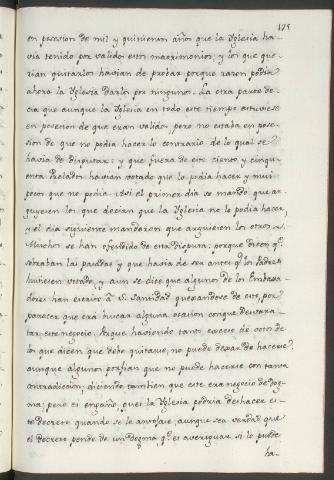 175
en posesion de mil y quinientos años que la Yglesia ha-
via tenido por validos estos matrimonios, y los que que-
rian quitarlos havian de probar porque razon podia
ahora la Yglesia darlos por ningunos. La otra parte de-
cia que aunque la Yglesia en todo este tiempo estuviese
en posesion de que eran validos, pero no estaba en pose-
sion de que no podia hacer lo contrario de lo qual se
havia de disputar: y que fuera de esto ciento y cinqu-
enta Prelados havian votado que lo podia hacer y mui
pocos que no podia. Asi el primer dia se mando que ar-
guyesen los que decian que la Yglesia no lo podia hacer,
y el dia siguiente mandaron que arguiesen los otros.
Muchos se han ofendido de esta disputa: porque dicen q.e
sobraban las pasadas y que havia de ser antes q.e los Padres
huviesen votado, y aun se dice que algunos de los Embaxa-
dores han escrito à S. Santidad quexandose de esto, por
parecer que era buscar alguna ocasion con que desvara-
tar este negocio. Aunque haviendo tanto exceso de votos de
los que dicen que debe quitarse, no puede dexar de hacerse
aunque algunos porfian que no puede hacerse con tanta
contradiccion; diciendo tambien que este era negocio de dog-
ma; pero es engaño, que si la Yglesia podria deshacer es-
te decreto quando se le antojase, aunque sea verdad que
el decreto pende de un dogma q.e es averiguar si lo puede
ha-